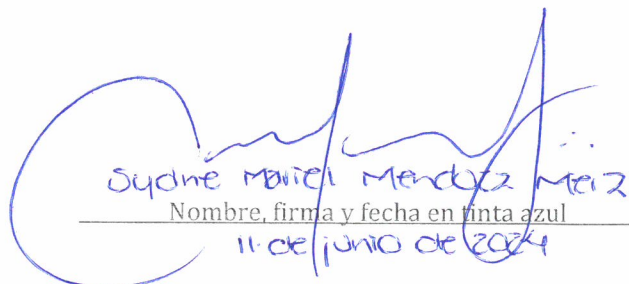 Sydne Mariel Mendoza Meiz
Nombre, firma y fecha en tinta azul
11 de junio de 2024